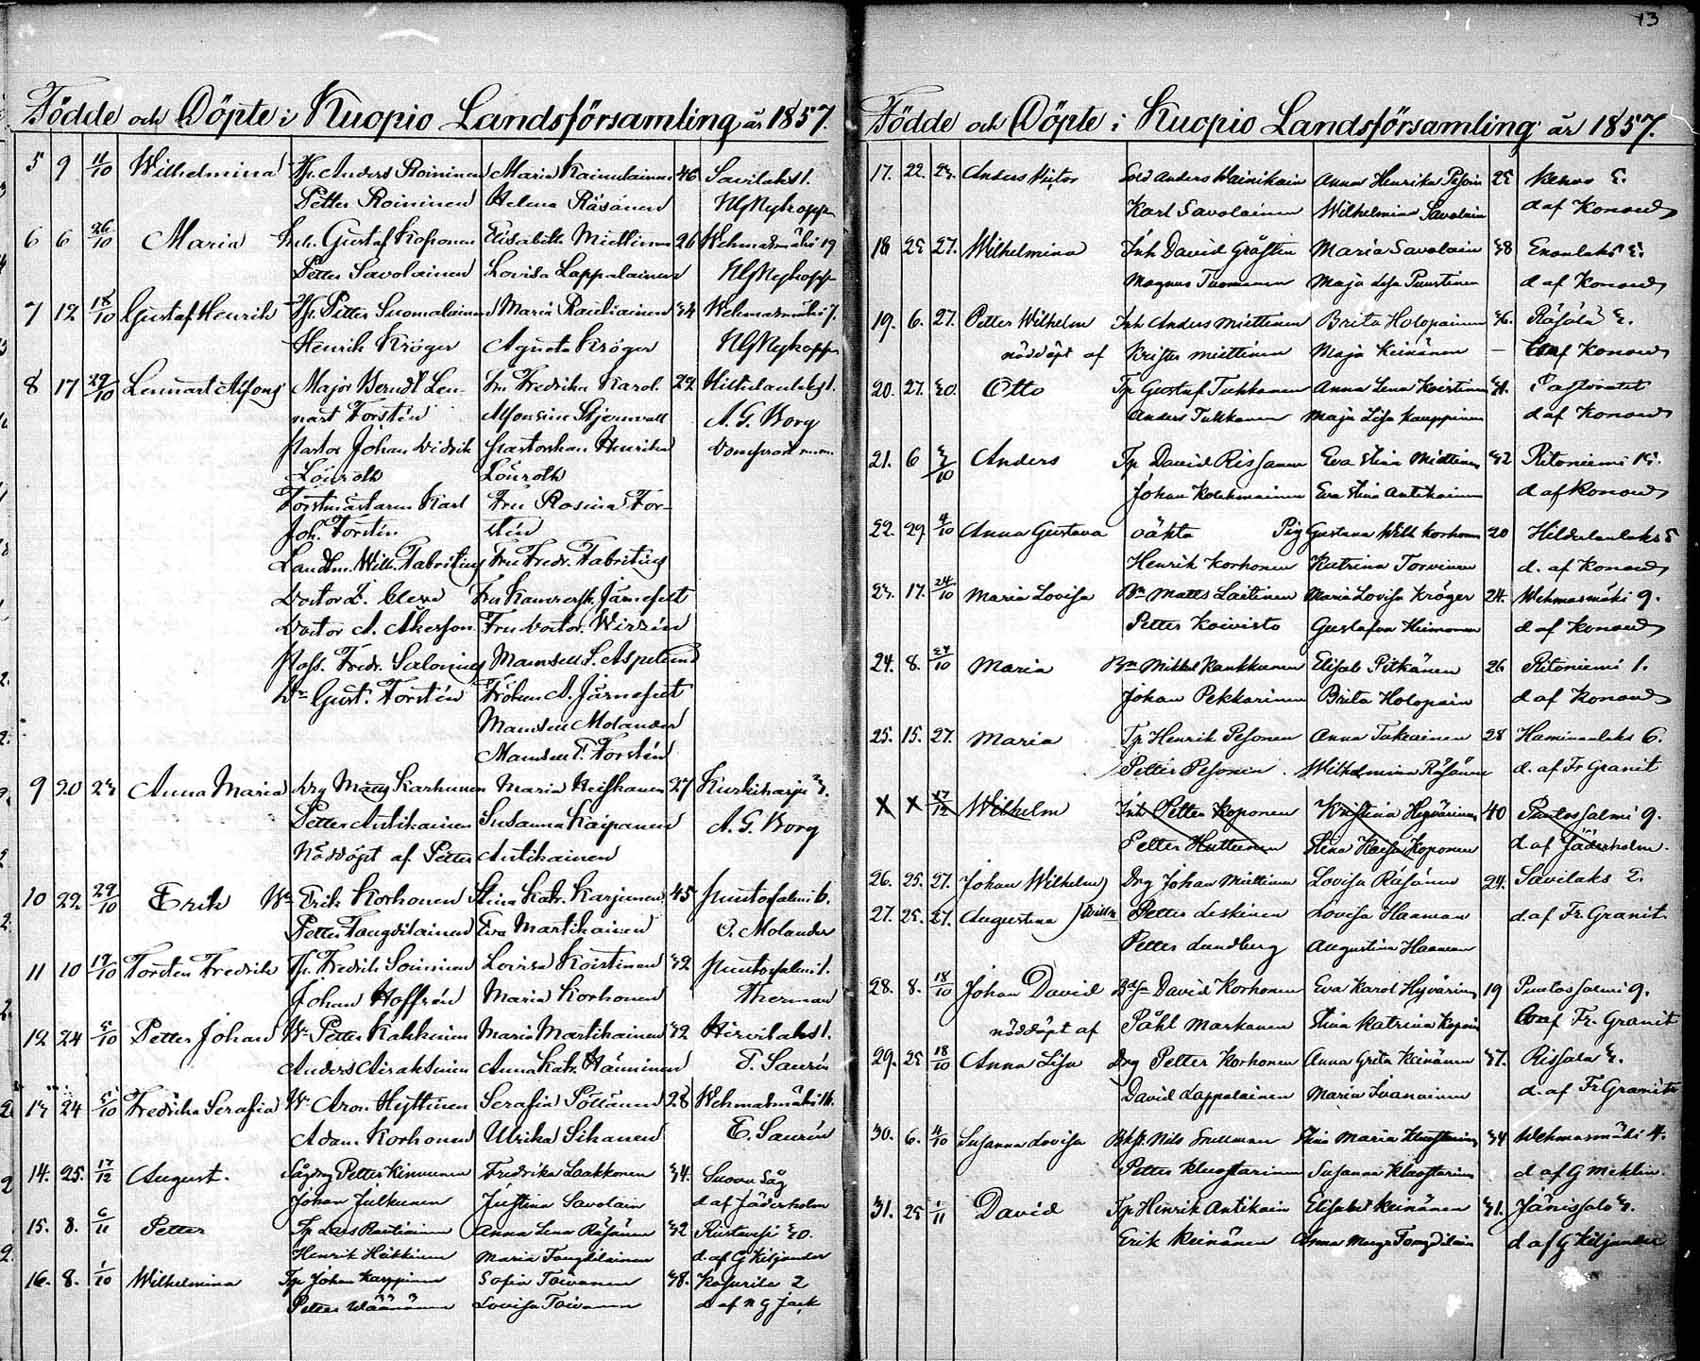 Födde och Döpte i Kuopio Landsförsamling år 1857.
5 9 11/10 Wilhelmina Tp. Anders Roininen Maria Kainulainen 46 Savilaks 1.
Petter Roininen Helena Räsänen NGNykopp
6 6 26/10 Maria Inh. Gustaf Koponen Elisabeth Miettinen 26 Wehmasmäki 19
Petter Savolainen Lovisa Lappalainen NGNykopp
7 12 18/10 Gustaf Henrik Tp. Petter Suomalainen Maria Rautiainen Wehmasmäki 7.
Henrik Kröger Agusta Kröger NGNykopp
8 17 29/10 Lennart Alfons Major Berndt Len- Fru Fredrika Karol. 22
nart Forstén Alfonsine Stjernvall A. G. Borg
Pastor Johan Didrik Pastorskan Henrika
Lönroth Lönroth
Forstmästaren Karl Fru Rosina For-
Joh. Forstén stén
Landtm. Wilh. Fabritius Fru Fredr. Fabritius
Doctor Fru Kamrersk. Järnefelt
Doctor A. Åkesson Fru Doctor. Wirzén
Poss. Fredr. Salonius Mamsell L. Aspelund
Gust. Forstén Fröken A. Järnefelt
Mamsell Molander
Mamsell F. Forstén
9 20 23 Anna Maria Drg Mång Karhunen Maria Heiskanen 27 Kurkiharju 3.
Petter Antikainen Susanna Kaipanen A. G. Borg
Nöddöpt af Petter Antikainen
10 22 29/10 Erik Erik Korhonen Stina Katr. Karjunen 45 Puutosalmi 6.
Petter Tungdilainen Eva Martikainen O. Molander
11 10 19/10 Torsten Fredrik Tp. Fredrik Soininen Lovisa Koistinen 32 Puutosalmi 1.
Johan Hoffrén Maria Korhonen Therman
12 24 5/10 Petter Johan Petter Kakkinen Maria Martikainen 32 Hirvilaks 1.
Anders Airaksinen Anna Katr. Hänninen E. Saurén
13 24 5/10 Fredrika Serafia Aron Hyttinen Serafia Pöllänen 28 Wehmasmäki 16.
Adam Korhonen Ulrika Sihanen E. Saurén
14. 25. 17/12 August. Sågdrg Petter Kinnunen Fredrika Laakkonen 34. Suovu Såg
Johan Julkunen Justina Savolain d af Jäderholm
15. 8. 6/11 Petter Tp Lars Rautiainen Anna Lena Räsänen 32 30.
Henrik Heikkinen Maria Tungdilainen d. af G Kiljander
16. 8. 1/10 Wilhelmina Tp Johan Karppinen Sofia Toivanen 38. Kasurila 2
Petter Wäänänen Lovisa Toivanen d af N G Jack
13
Födde och Döpte i Kuopio Landsförsamling år 1857.
17. 22. 23. Anders Victor Sold Anders Wainikain Anna Henrika Pesoin 25 3.
Karl Savolainen Wilhelmina Savolain d af Konow
18 25 27. Wilhelmina Inh David Gråsten Maria Savolain 38 Enonlaks 3.
Magnus Tuomainen Maja Lisa Puustinen d af Konow
19. 6. 27. Petter Wilhelm Inh Anders Miettinen Brita Holopainen 36. Räsälä 3.
nöddöpt af Krister Miettinen Maja Keinänen — af Konow
20. 27. 30. Otto Tp Gustaf Tukkanen Anna Lena Koistinen 31. Pastoratet
Anders Tukkanen Maja Lisa Kauppinen d af Konow
21. 6 3/10 Anders Tp David Rissanen Eva Stina Miettinen 32 Ritoniemi 13.
Johan Kolehmainen Eva Stina Antikainen d af Konow
22. 29 4/10 Anna Gustava oäkta Pig Gustava Wilh Korhonen 20 Hildulanlaks 5
Henrik Korhonen Katrina Torvinen d. af Konow
23. 17. 24/10 Maria Lovisa Matts Laitinen Maria Lovisa Kröger 24. Wehmasmäki 9.
Petter Koivisto Gustafva Heimonen d af Konow
24. 8. 24/10 Maria Mikkel Kankkunen Elisab Pitkänen 26 Ritoniemi 1.
Johan Pekkarinen Brita Holopain d af Konow
25. 15. 27. Maria Tp Henrik Pesonen Anna Takainen 28 Haminanlaks 6.
Petter Pesonen Wilhelmina Räsänen d. af Fr Granit
X X 17/12 Wilhelm Inh Petter Koponen Kristina Hyvärinen 40 Puutossalmi 9.
Petter Huttunen Stina Kaisa Koponen d. af Jäderholm.
26. 25. 27. Johan Wilhelm Drg Johan Miettinen Lovisa Räsänen 24. Savilaks 2.
27. 25. 27. Augustina Petter Leskinen Lovisa Haaman d af Fr. Granit.
Petter Lundberg Augustina Haaman
28. 8. 18/10 Johan David David Korhonen Eva Karol Hyvärin 19 Puutossalmi 9.
nöddöpt af Påhl Markanen Stina Katrina Kopoin af Fr. Granit
29. 25 18/10 Anna Lisa Drg Petter Korhonen Anna Greta Keinänen 37. Rissala 3.
David Lappalainen Maria Iivanainen d. af Fr Granit
30. 6. 4/10 Susanna Lovisa Nils Snellman Stina Maria Kluostarinen 34 Wehmasmäki 4.
Petter Kluostarinen Susanna Kluostarinen d af G Meklin.
31. 25 1/11 David Tp Henrik Antikain Elisabet Keinänen 31. Jänissalo 3.
Erik Keinänen Anna Marga Tungdilain d af G Kiljander